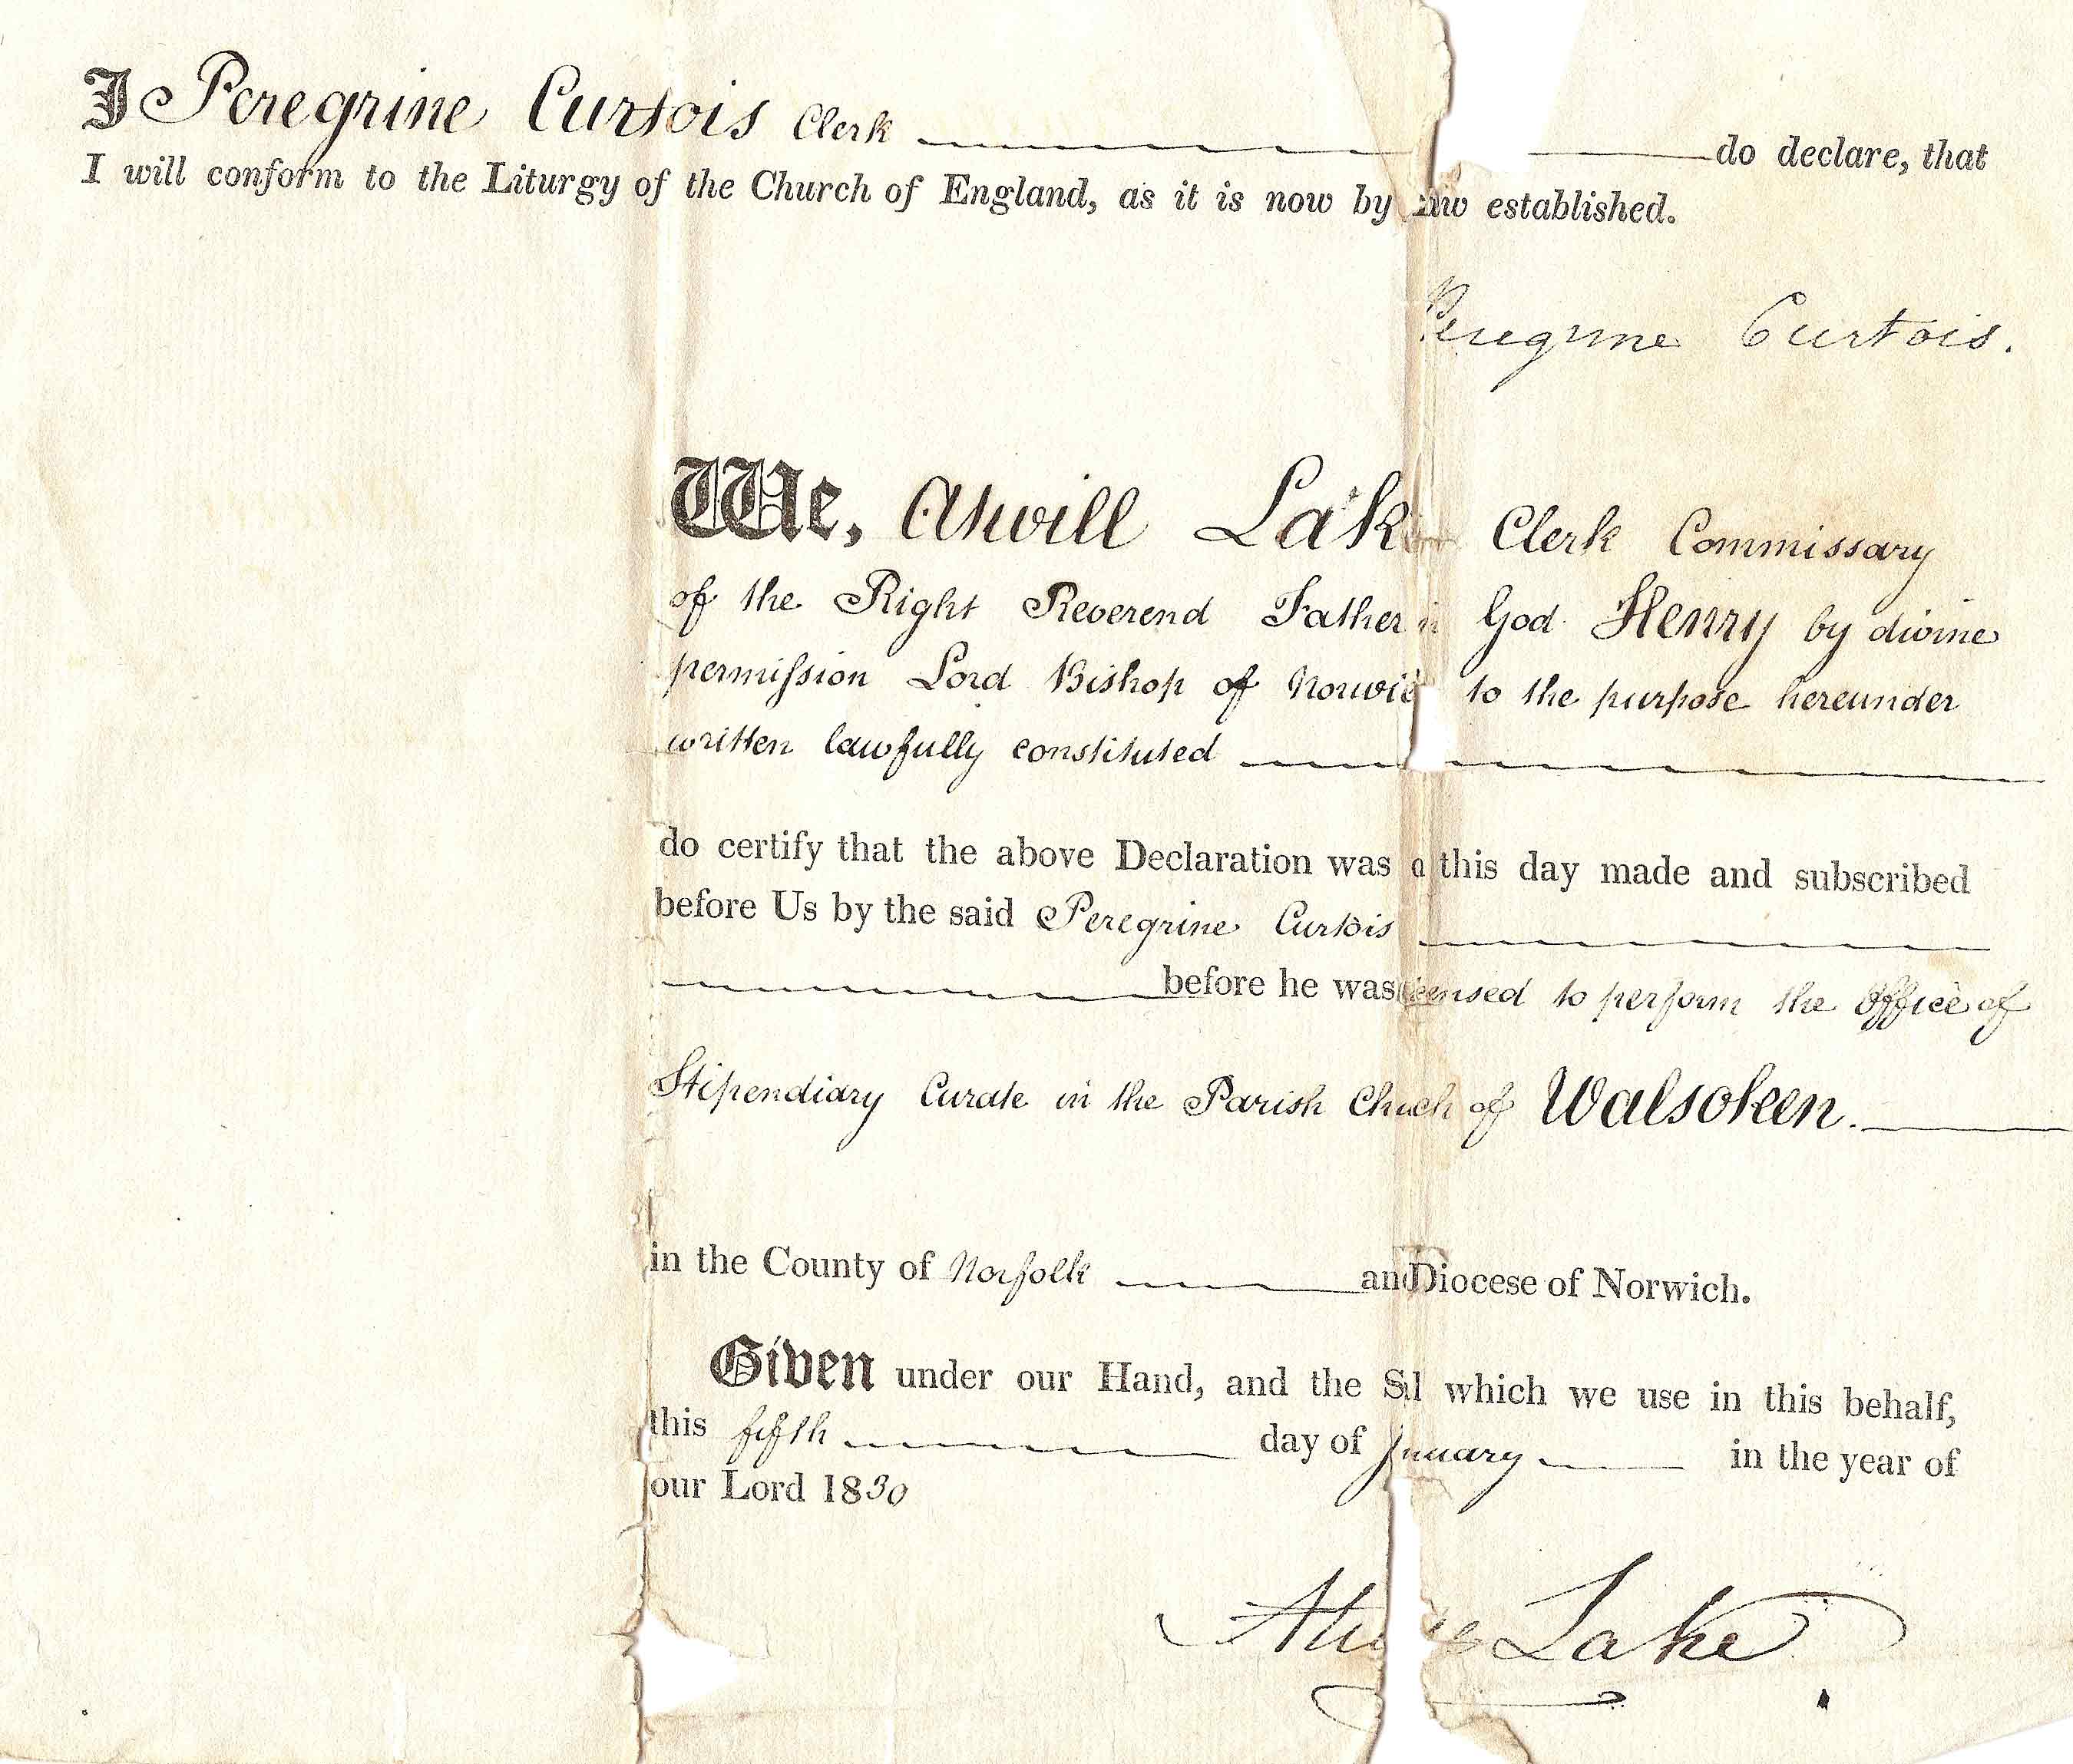 I Peregrine Curtois Clerk do declare, that
I will conform to the Liturgy of the Church of England, as it is now by established.
Peregrine Curtois.
We, Atwill Lake Clerk Commissary
of the Right Reverend Father in God Henry by divine
permission Lord Bishop of Norwic to the purpose hereunder
written lawfully constituted
do certify that the above Declaration was this day made and subscribed
before Us by the said Peregrine Curtois
before he was licensed to perform the Office of
Stipendiary Curate in the Parish Church of Walsoken.
in the County of Norfolk and Diocese of Norwich.
Given under our Hand, and the which we use in this behalf,
this fifth day of January in the year of
our Lord 1830
Lake